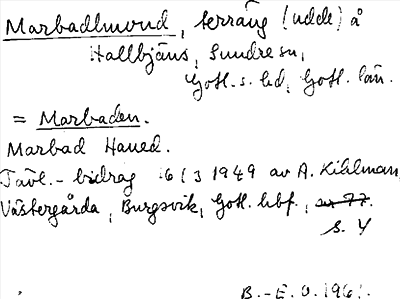 Marbadlmond, terräng (udde) å
Hallbjäns, Sundre sn,
Gotl. s. hd, Gotl. län.
= Marbaden.
Marbad Haued.
Tävl.-bidrag 6/3 1949 av A. Kihlman,
Västergårda, Burgsvik, Gotl. hbf.,
s. 4
B.-E. O. 1961.